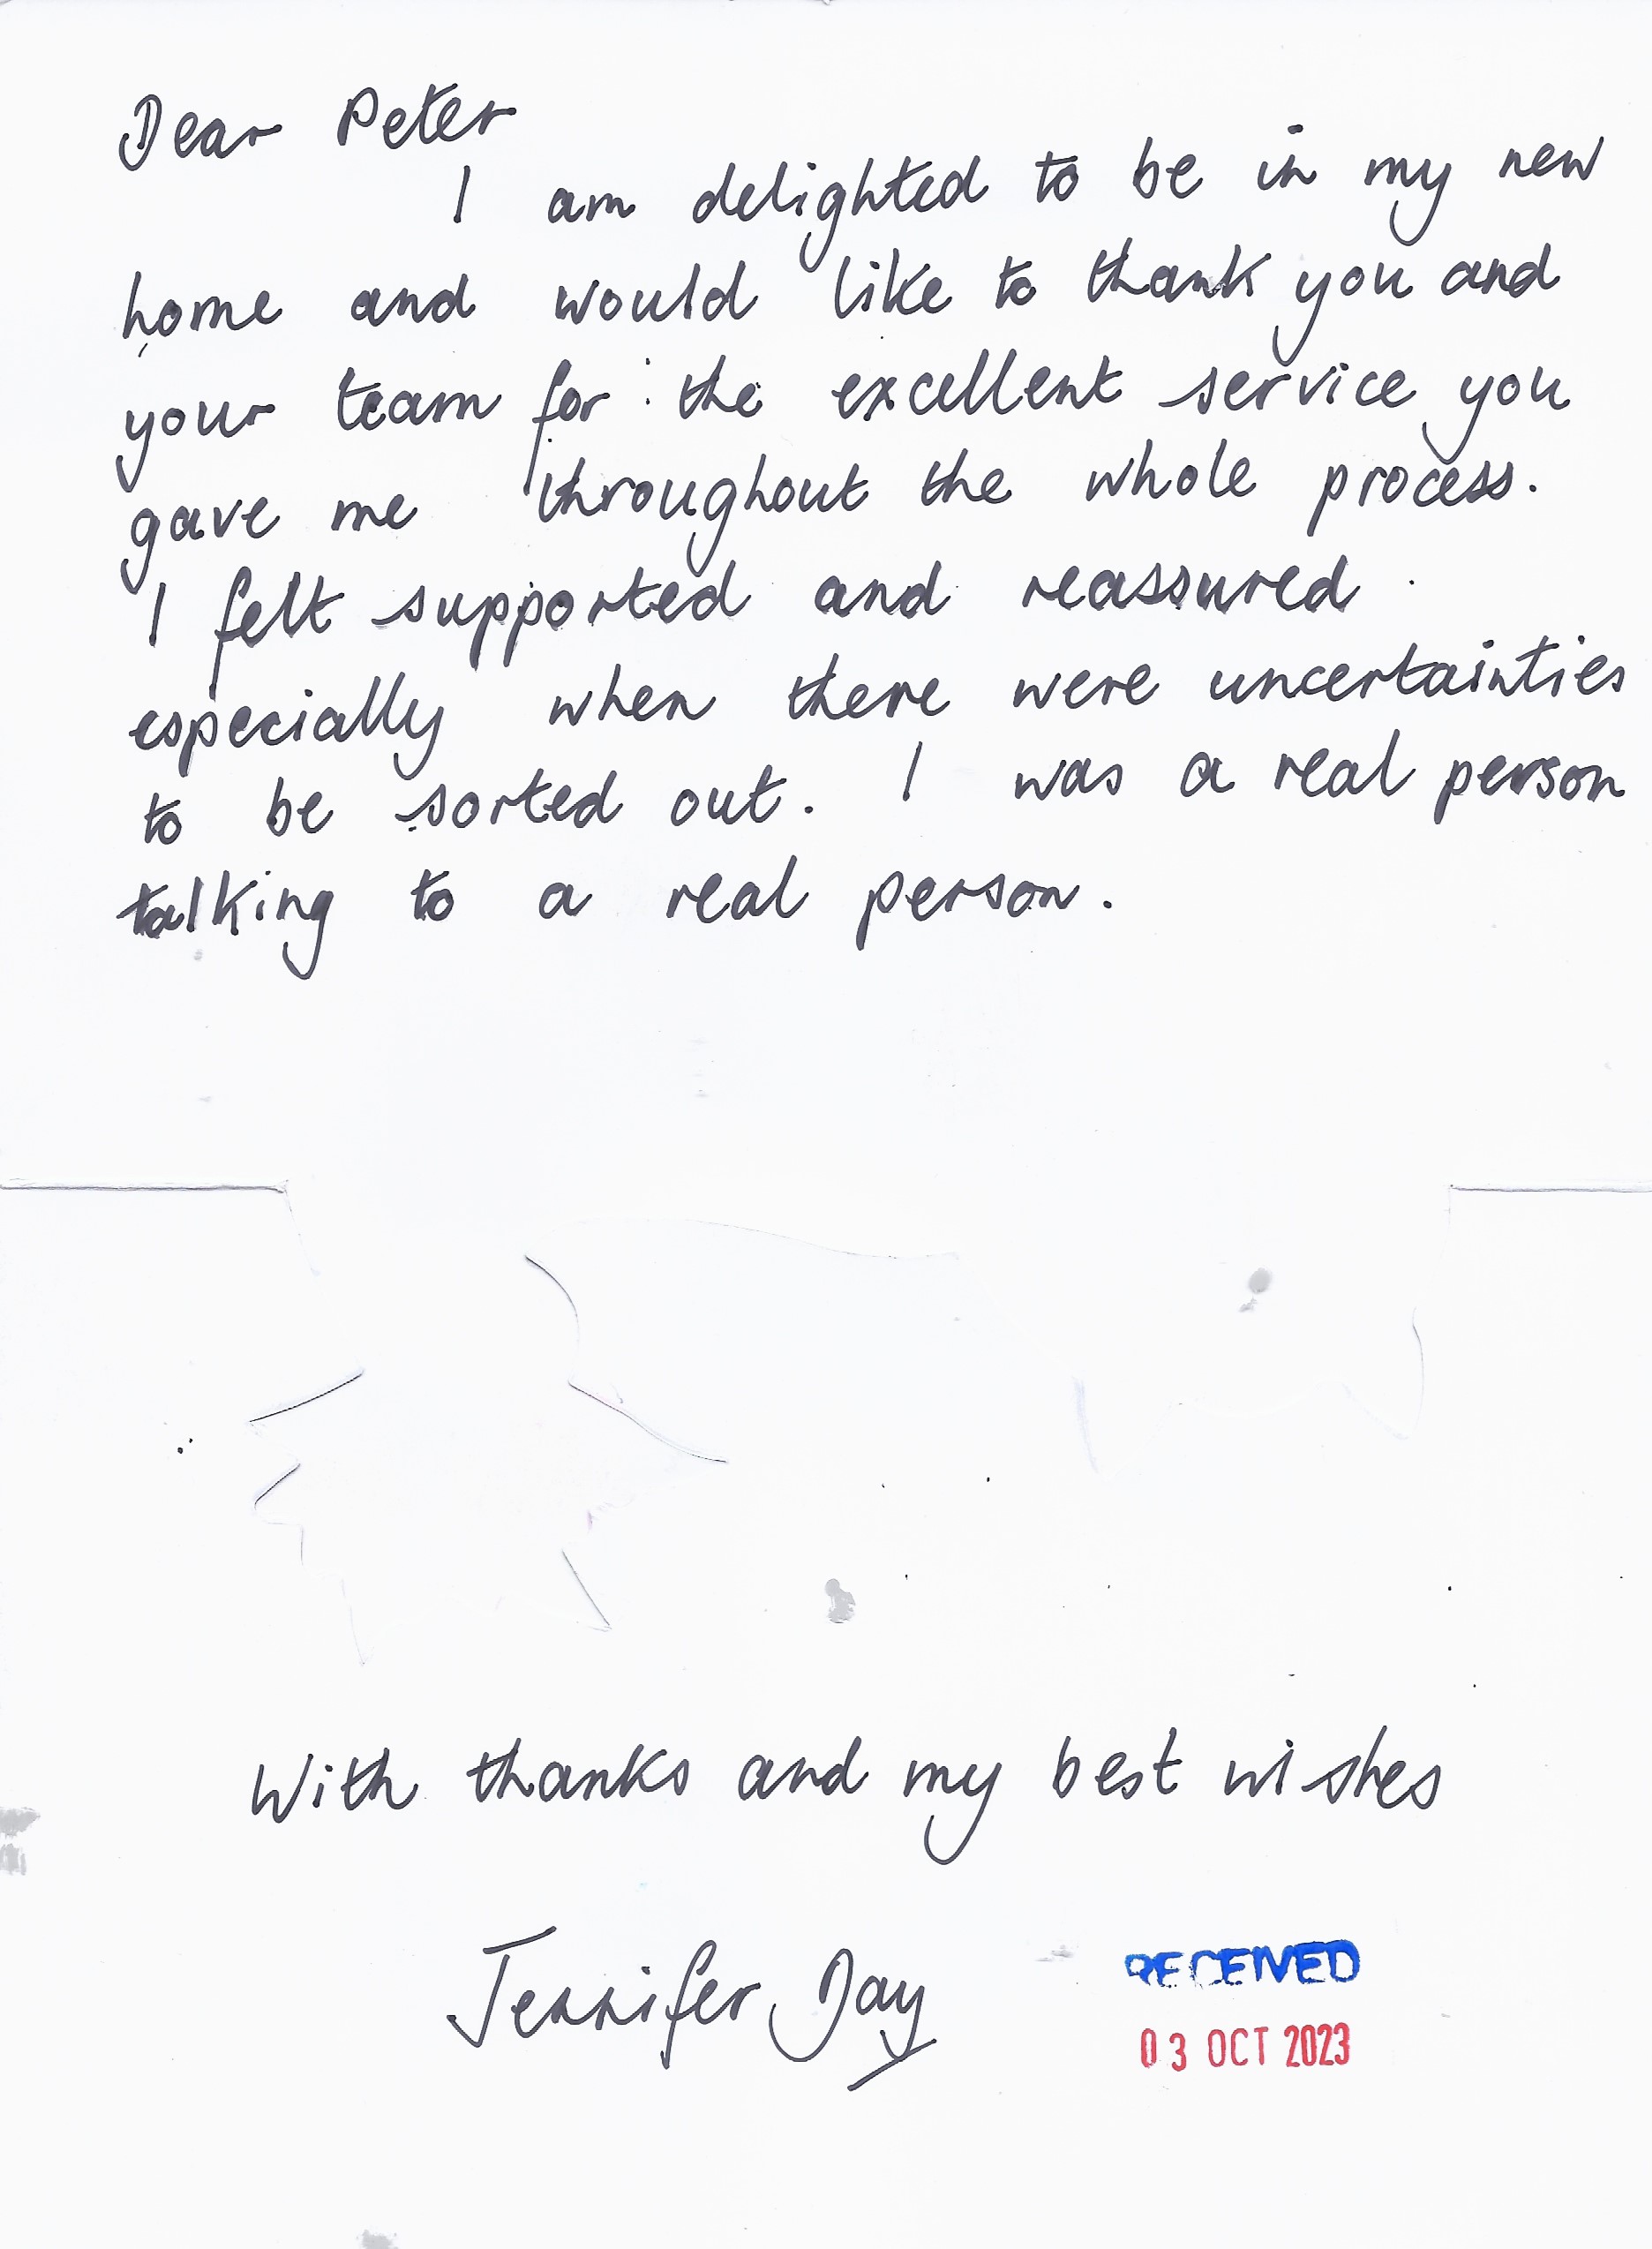 Dear Peter
I am delighted to be in my new
home and would like to thank you and
your team for the excellent service you
gave me throughout the whole process.
I felt supported and reassured
especially when there were uncertainties
to be sorted out. I was a real person
talking to a real person.
With thanks and my best wishes
Jennifer Day
RECEIVED
03 OCT 2023